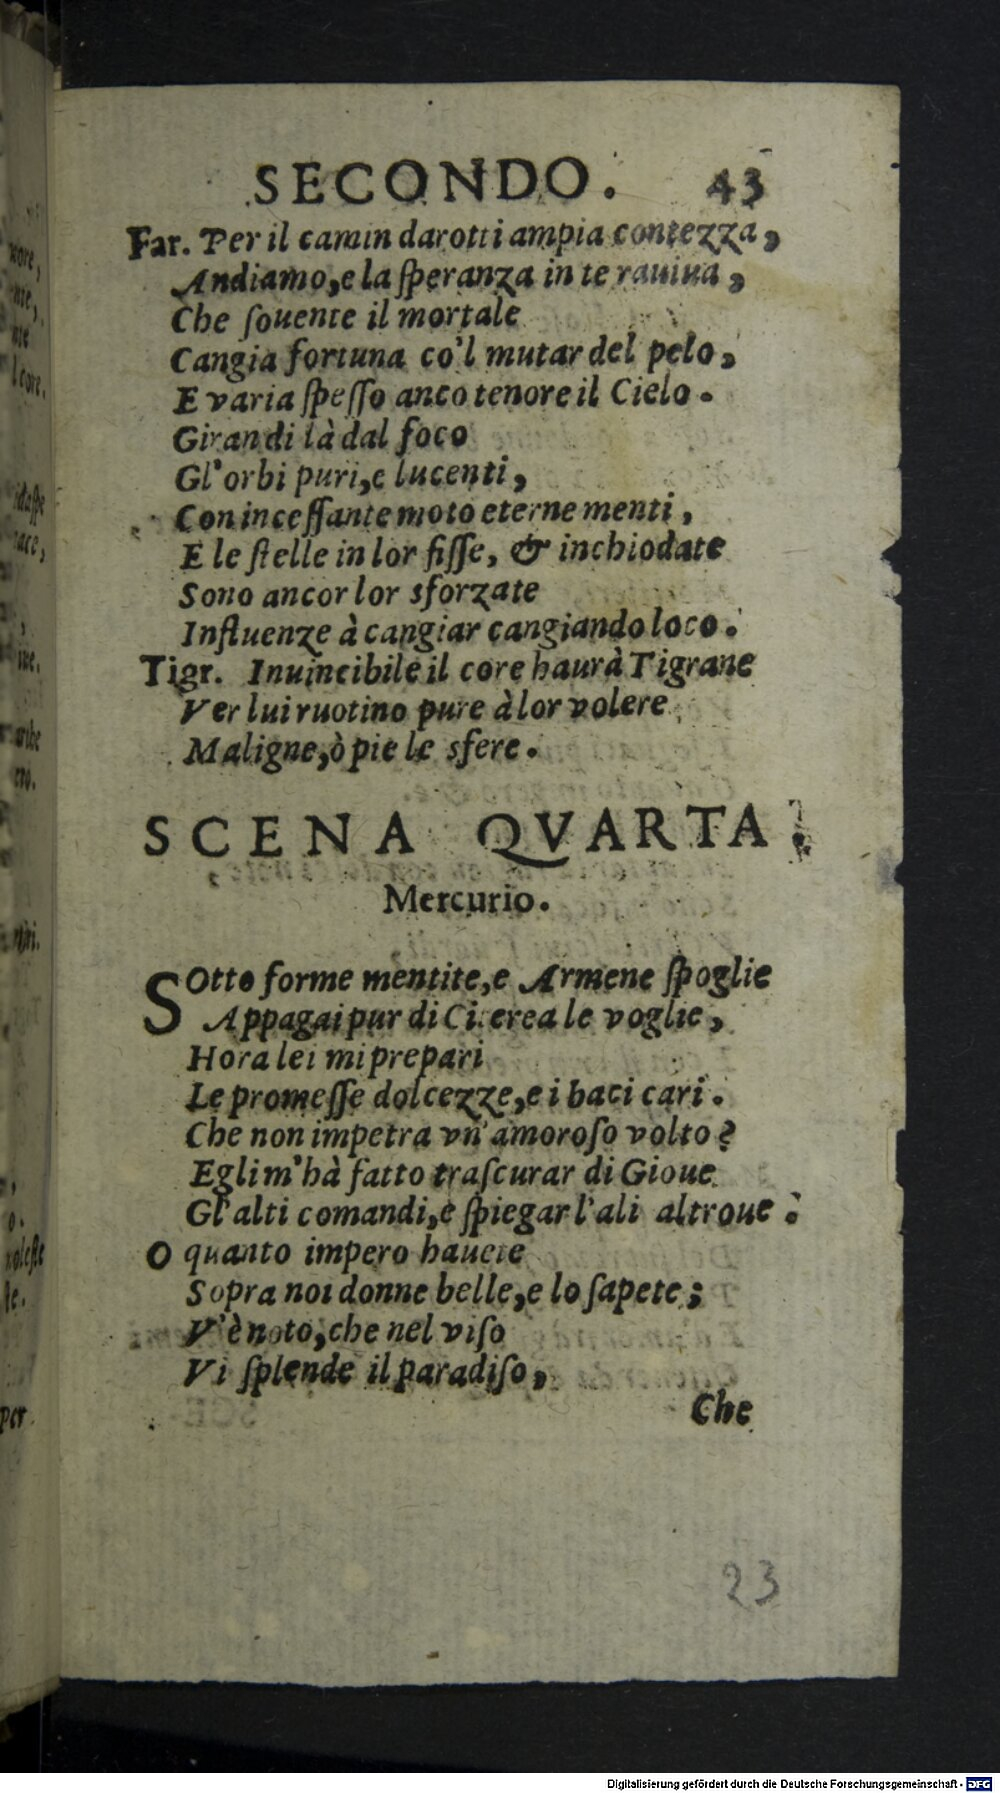 SECONDO. 43
Far. Per il camin darotti ampia contezza,
Andiamo, e la ſperanza in te rauiua,
Che ſouente il mortale
Cangia fortuna co'l mutar del pelo,
E varia ſpeſſo anco tenore il Cielo.
Giran di là dal foco
Gl'orbi puri, e lucenti,
Con inceſſante moto eterne menti,
E le ſtelle in lor fiſſe, & inchiodate
Sono ancor lor sforzate
Influenze à cangiar cangiando loco.
Tigr. Inuincibile il core haurà Tigrane
Ver lui ruotino pure à lor volere
Maligne, ò pie le sfere.
SCENA QVARTA.
Mercurio.
SOtto forme mentite, e Armene ſpoglie
Appagai pur di Citerea le voglie,
Hora lei mi prepari
Le promeſſe dolcezze, e i baci cari.
Che non impetra vn'amoroſo volto?
Egli m'hà fatto traſcurar di Gioue
Gl'alti comandi, e ſpiegar l'ali altroue.
O quanto impero hauete
Sopra noi donne belle, e lo ſapete;
V'è noto, che nel viſo
Vi ſplende il paradiſo,
Che
23
Digitalisierung gefördert durch die Deutsche Forschungsgemeinschaft - DFG